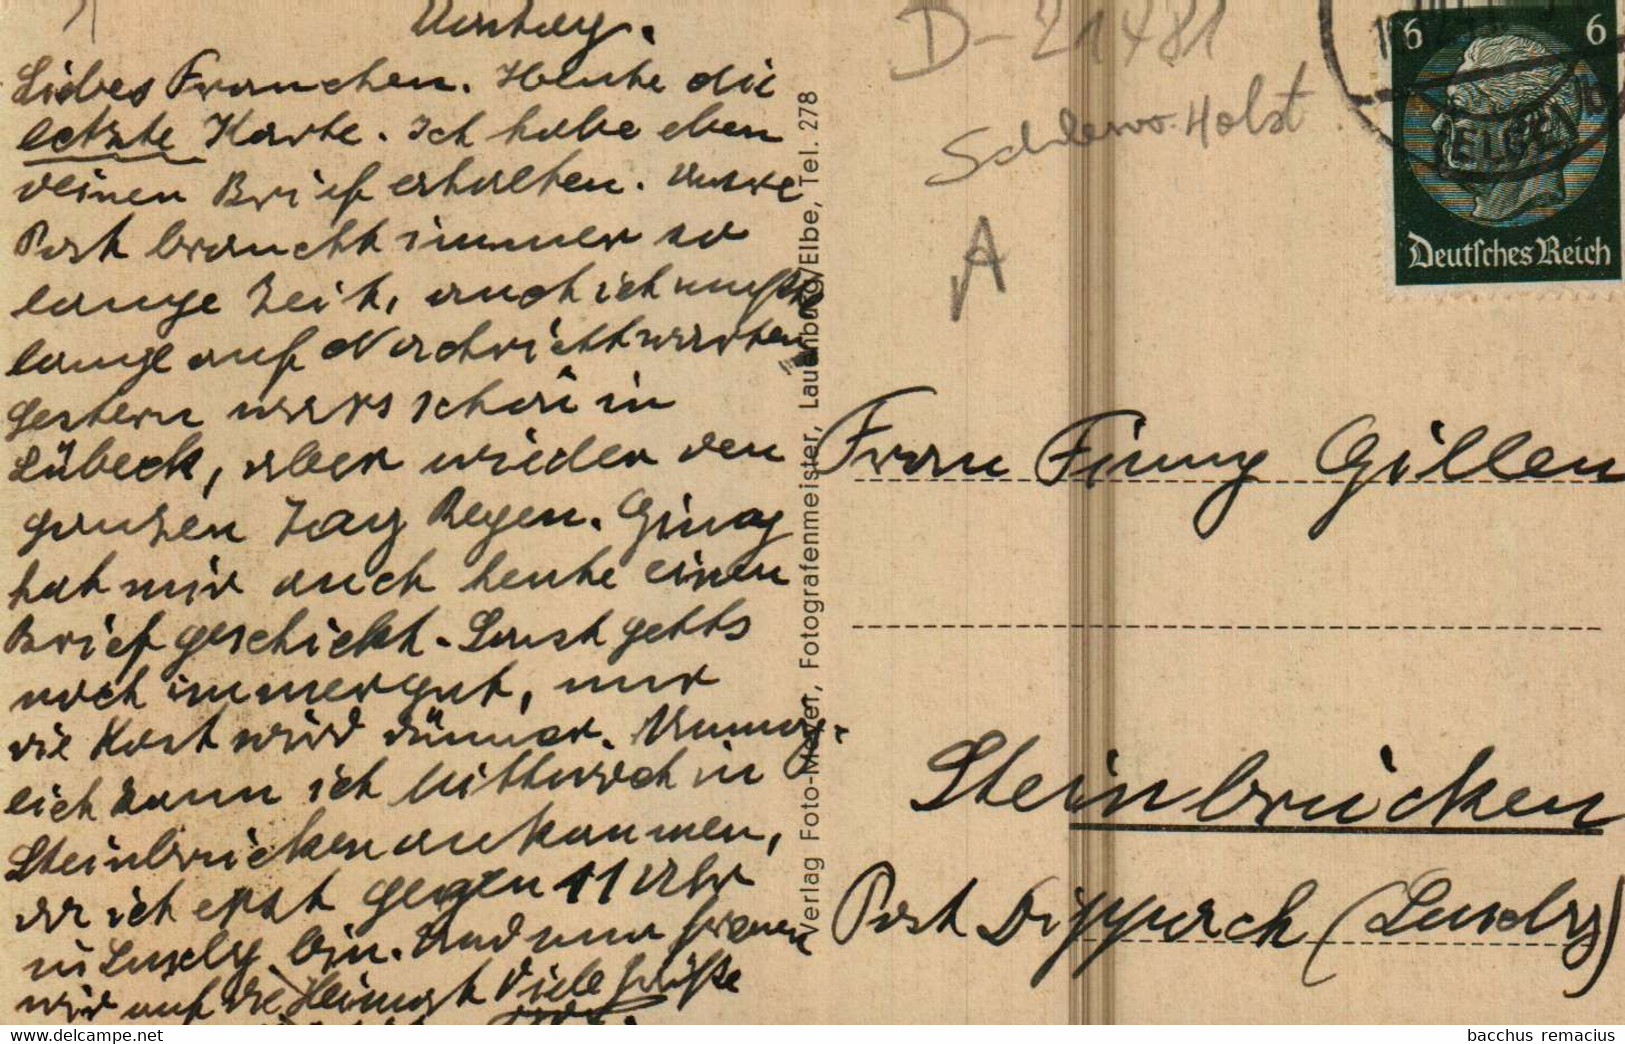 Liebes Frauchen. Heute die
letzte Karte. Ich habe eben
deinen Brief erhalten. Unsere
Post braucht immer so
lange Zeit, auch ich mußte
lange auf Nachricht warten
Gestern wars schön in
Lübeck, aber wieder den
ganzen Tag Regen.
hat mir auch heute einen
Brief geschickt. Sonst gehts
noch immer gut, nur
die Kost wird dünner. Unmög-
lich kann ich Mittwoch in
Steinbrücken ankommen,
da ich erst gegen 11 Uhr
in Luxbg bin. Und nun freuen
wir auf die Heimat Viele Grüße
Verlag Foto-Meyer, Fotografenmeister, Lauenburg/Elbe, Tel. 278
D-21481
Schlesw.-Holst
A
6 6
Deutsches Reich
Frau Finny Gillen
Steinbrücken
Post Dippach (Luxbg)
bacchus remacius